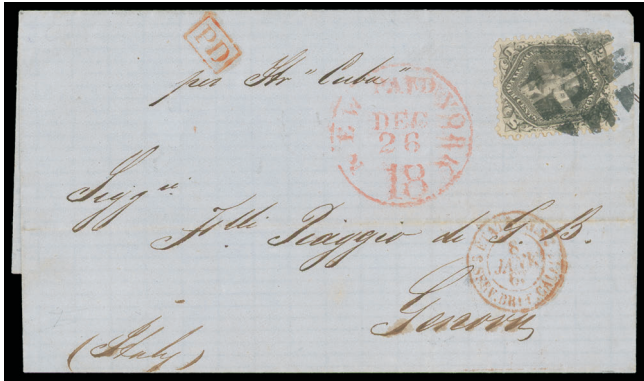 PD
per Str "Cuba"
NEW PAID YORK
DEC
26
18
Sigg.ri
F.lli Piaggio di G. B.
8
JANV.
Genova
(Italy)